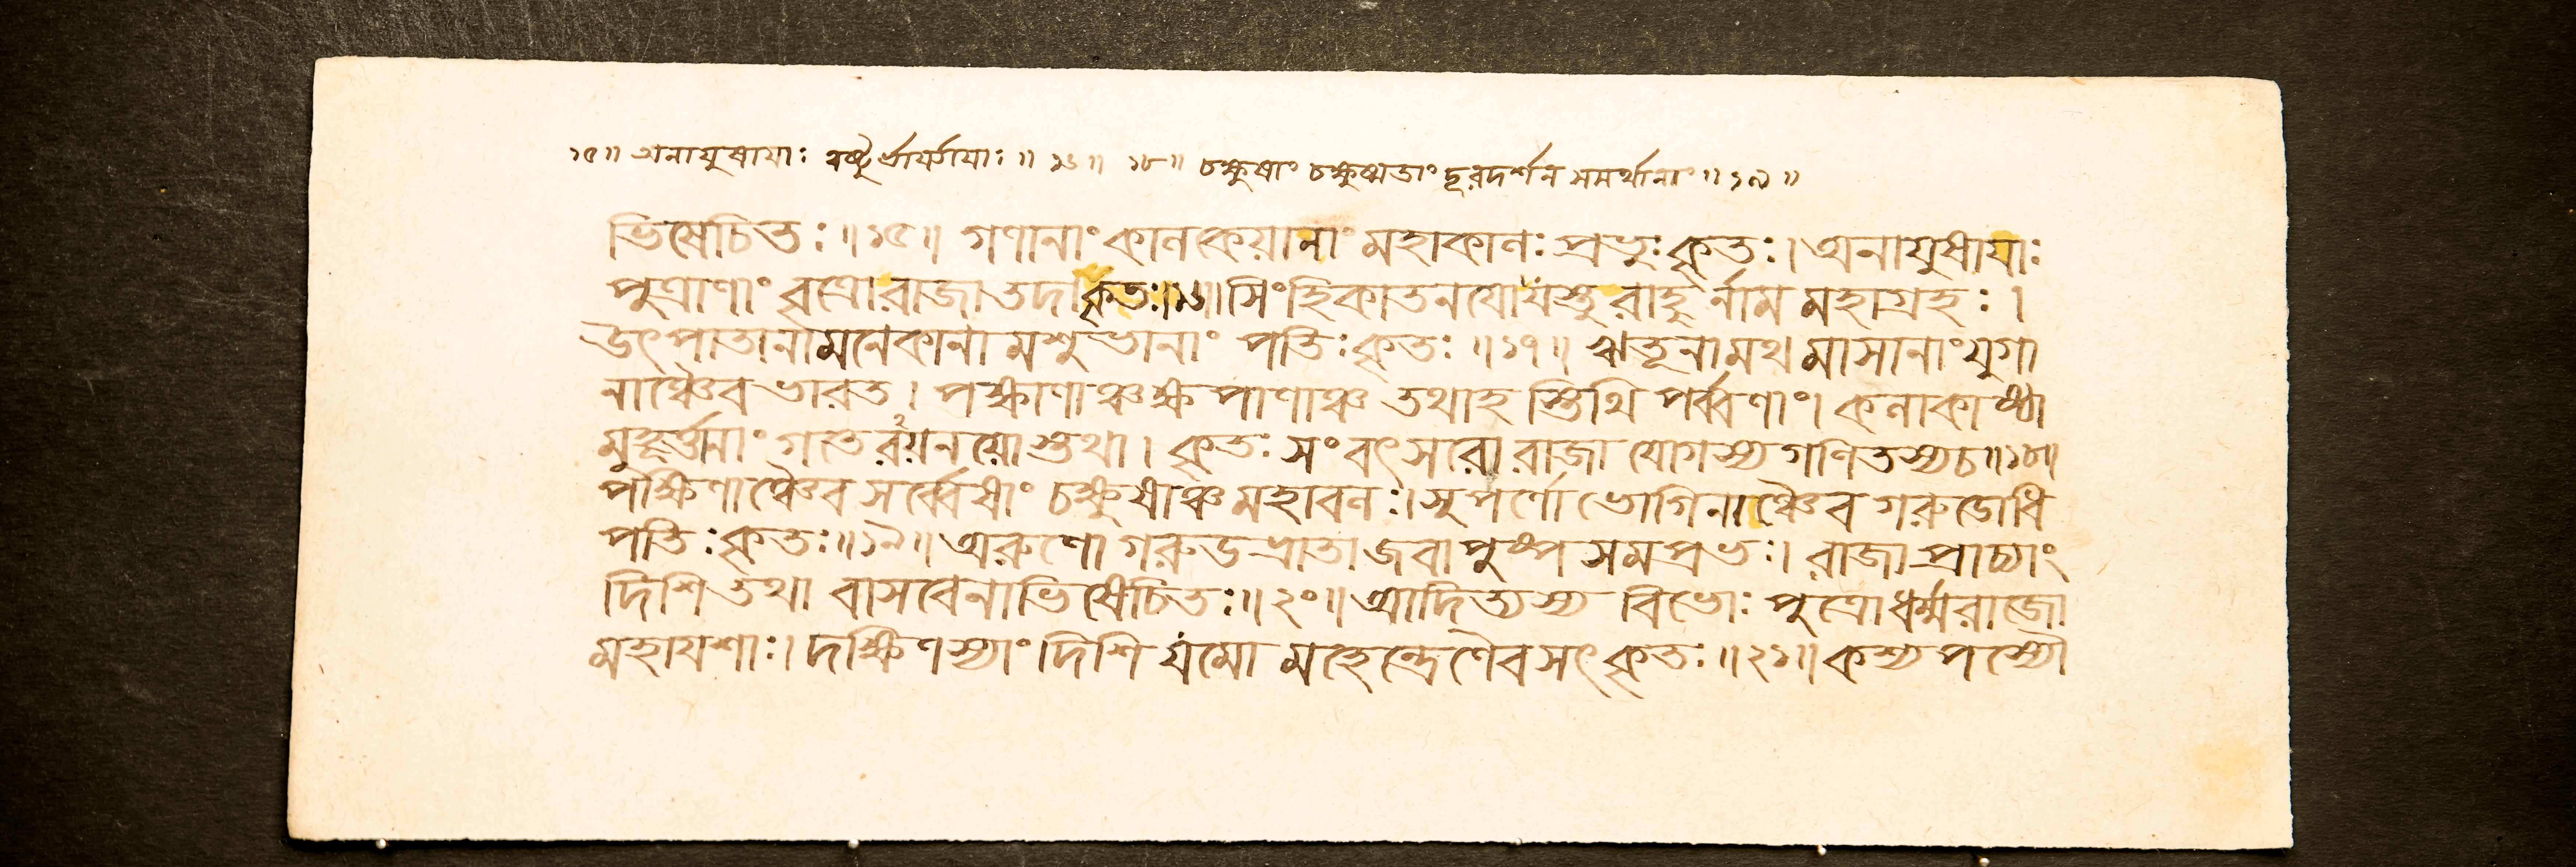 ১৫॥ অনাযুষাযাঃ ॥ ১৬॥ ১৮॥ চক্ষুষাং চক্ষুষ্মতাং দূরদর্শন সমর্থানাং ॥১৯॥
ভিষেচিতঃ॥১৫॥ গণানাং কালকেয়ানাং মহাকালঃ প্রভুঃ কৃতঃ। অনাযুষাযাঃ
পুত্রাণাং বৃত্রো রাজা তদা কৃতঃ॥১৬॥ সিংহিকাতনযো যস্তু রাহু র্নাম মহাগ্রহঃ।
উৎপাতানামনেকানা মশুভানাং পতিঃ কৃতঃ॥১৭॥ ঋতূনামথ মাসানাং যুগা
নাঞ্চৈব ভারত। পক্ষাণাঞ্চ ক্ষপাণাঞ্চ তথাহ স্তিথি পর্ব্বণাং। কলাকাষ্ঠা
মুহূর্ত্তানাং গতে রয়নয়ো স্তথা। কৃতঃ সংবৎসরো রাজা যোগস্য গণিতস্যচ॥১৮॥
পক্ষিণাঞ্চৈব সর্ব্বেষাং চক্ষুষাঞ্চ মহাবলঃ। সুপর্ণো ভোগিনাঞ্চৈব গরুডোধি
পতিঃ কৃতঃ॥১৯॥ অরুণো গরুডভ্রাতা জবা পুষ্প সমপ্রভঃ। রাজা প্রাচ্যাং
দিশি তথা বাসবেনাভিষেচিতঃ॥২০॥ আদিত্যস্য বিভোঃ পুত্রো ধর্ম্মরাজো
মহাযশাঃ। দক্ষিণস্যাং দিশি যমো মহেন্দ্রেণৈব সৎকৃতঃ॥২১॥ কশ্যপস্যৌ